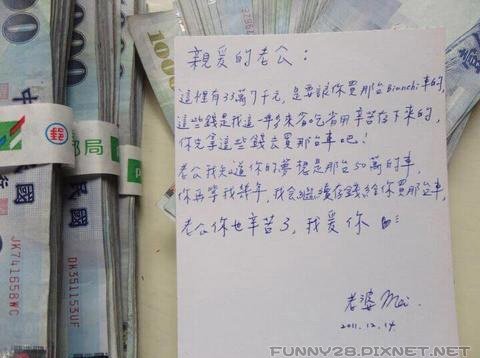 親愛的老公：
這裡有33萬7千元,是要讓你買那台Bianchi車的,
這些錢是我這一年多來省吃省用辛苦存下來的,
你先拿這些錢去買那台車吧!
老公我知道你的夢想是那台50萬的車,
你再等我幾年,我會繼續存錢給你買那台車,
老公你也辛苦了,我愛你
老婆 Mei.
2011.12.14
1000
郵局
民國
JK741658WC
DK351153UD
FUNNY28.PIXNET.NET